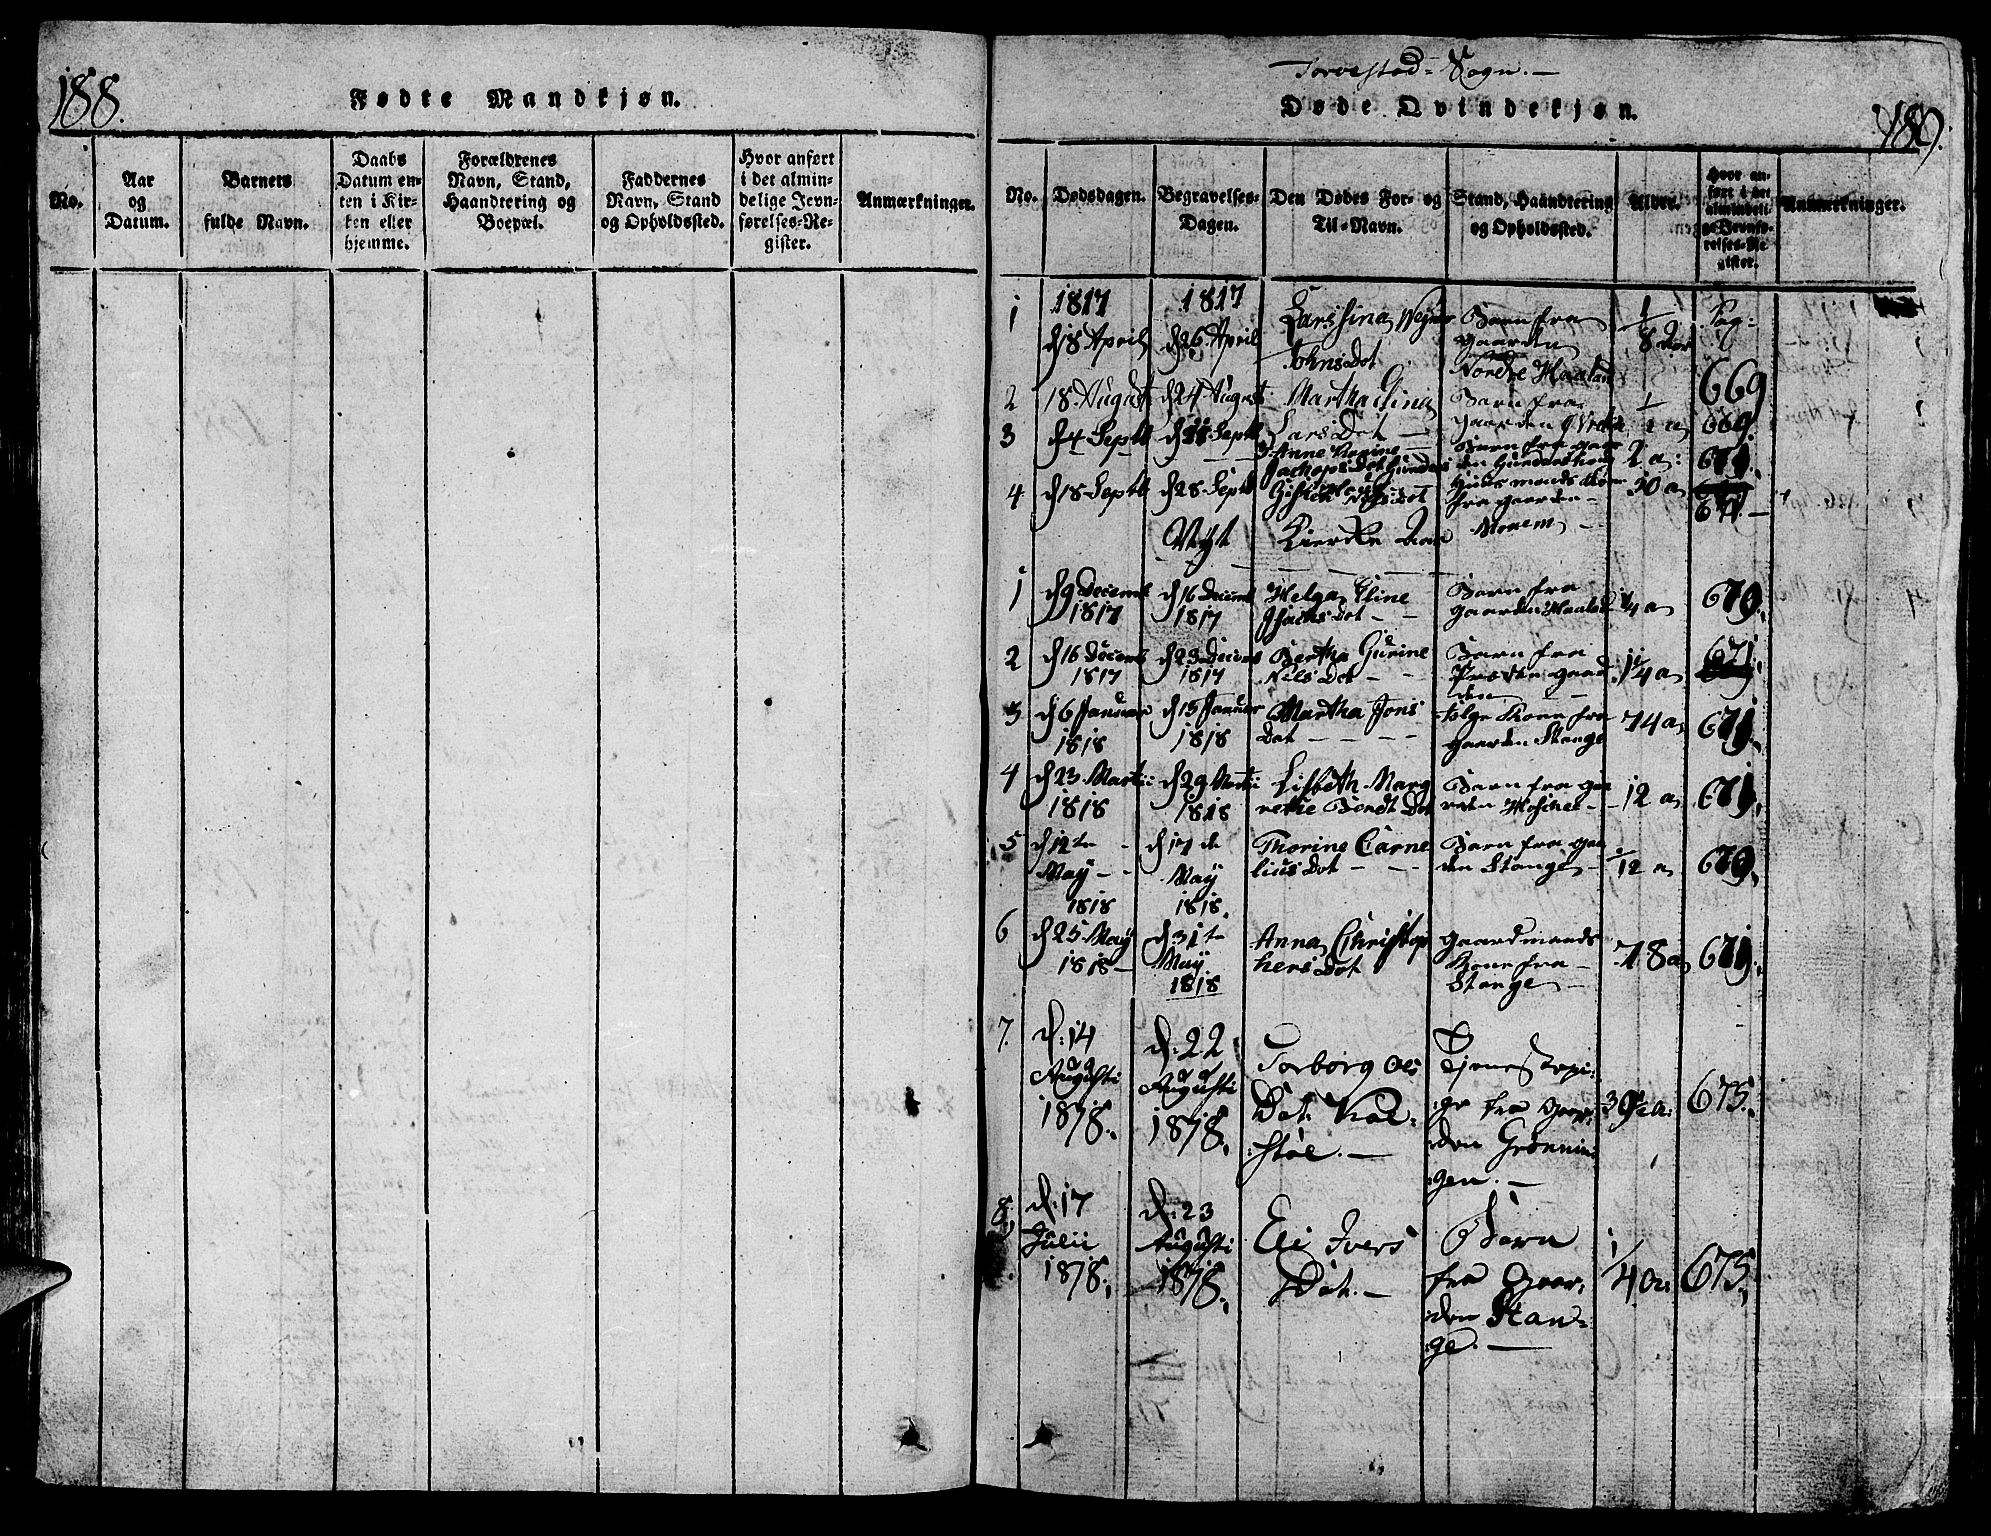 188.
Fødte Mandkjøn.
No.
Aar
og
Datum.
Barnets
fulde Navn.
Daabs
Datum en-
ten i Kir-
ken eller
hjemme.
Forældrenes
Navn, Stand,
Haandtering og
Boepæl.
Faddernes
Navn, Stand
og Opholdssted.
Hvor anført
i det almin-
delige Jevn-
førelses-Re-
gister.
Anmærkninger.
Torvestad-Sogn.-
Døde Qvindekjøn.
189.
No.
Dødsdagen.
Begravelses-
Dagen.
Den Dødes For- og
Til-Navn.
Stand, Haandtering
og Opholdssted.
Alder.
Hvor an-
ført i det
almindeli-
ge Jevnfø-
relses-Re-
gister.
Anmærkninger.
1
1817
d 18 April
1817
d 26 April
Larssina
JohnsDot
Barn fra
gaarden
Nordre Haaland
1/8 Aar
Pag:
669
2
18 August
d 24 August
Martha Elina
LarsDot
Barn fra
gaarden
1/1 a
669
3
d 4 Septb
d 11 Septb
Anne
Barn fra gaar
2 a:
671.
4
d 18 Septb
d 28 Septb
Huusmands Kone
fra gaarden
30 a
671.-
1
d 9 Decemb
1817
d 16 Decemb
1817
Helga Eline
Dot - -
Barn fra
gaarden Haaland
1/4 a
670.
2
d 16 Decemb
1817
d 23 Decemb
1817
Bertha Gurine
Nels Dot - -
Barn fra
gaar
den
1/4 a
671.
3
d 6 Januar
1818
d 15 Januar
1818
Martha Jons
Dot - - - -
Kone fra
gaarden Stange
74 a
671.
4
d 23 Martii
1818
d 29 Martii
1818
Lisbeth Marg
rethe Bendt Dot
Barn fra gaa
rden
12 a
671.
5
d 12te
May - -
1818
d 17 de
May
1818.
Thorine Carne
lius Dot - - -
Barn fra gaa
den Stange -
1/12 a
670.
6
d 25 May
1818 -
d 31te
May
1818
Anna Christop
hers Dot
gaardmands
Kone fra -
Stange -
78 a
671.
7.
d: 14
Augusti
1818.
d: 22
Augusti
1818.
Torborg Ols
Dot. Kol-
støe. -
Tjenestepi-
ge fra Gaar-
den Grønnin-
gen. -
675.
8.
d: 17
Julii
1818.
d: 23
Augusti
1818.
Eli Ivers
Dot. -
Barn
fra Gaar-
den Stan-
ge. -
1/4 a:
675.